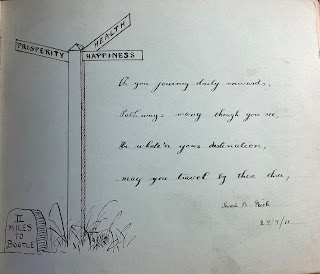 HEALTH
PROSPERITY
HAPPINESS
As you journey daily onwards,
Pathways many though you see,
Be whate'er your destination,
may you travel by these three,
B.
II
MILES
TO
BOOTLE